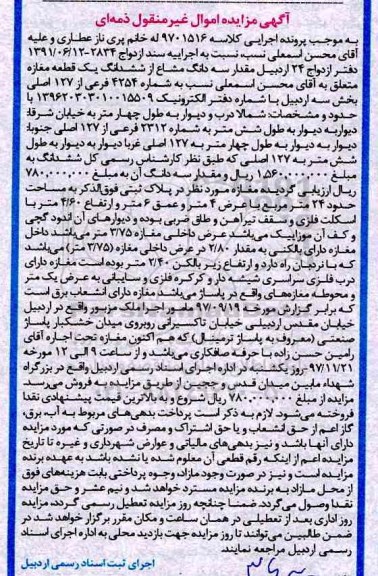 آگهی مزایده اموال غیر منقول ذمه‌ای
به موجب پرونده اجرایی کلاسه ۹۷۰۱۵۱۶ له خانم پری ناز عطاری و علیه
آقای محسن اسمعلی نسب، نسبت به اجراییه سند ازدواج ۲۸۳۴-۱۳۹۱/۰۶/۱۲
دفتر ازدواج ۲۴ اردبیل مقدار سه دانگ مشاع از ششدانگ یک قطعه مغازه
متعلق به آقای محسن اسمعلی نسب به شماره ۴۲۵۴ فرعی از ۱۲۷ اصلی
بخش سه اردبیل با شماره دفتر الکترونیک ۱۳۹۶۲۰۳۰۳۰۱۰۰۱۵۵۰۹ با
حدود و مشخصات: شمالا درب و دیوار به طول چهار متر به خیابان شرقا:
دیوار به دیوار به طول شش متر به شماره ۲۳۱۲ فرعی از ۱۲۷ اصلی جنوبا:
دیوار به دیوار به طول چهار متر به ۱۲۷ اصلی غربا دیوار به دیوار به طول
شش متر به ۱۲۷ اصلی که طبق نظر کارشناس رسمی کل ششدانگ به
مبلغ ۱٫۵۶۰٫۰۰۰٫۰۰۰ ریال و مقدار سه دانگ آن به مبلغ ۷۸۰٫۰۰۰٫۰۰۰
ریال ارزیابی گردیده مغازه مورد نظر در پلاک ثبتی فوق‌الذکر به مساحت
حدود ۲۴ متر مربع با عرض ۴ متر و عمق ۶ متر و ارتفاع ۴/۶۰ متر با
اسکلت فلزی و سقف تیرآهن و طاق ضربی بوده و دیوارهای آن اندود گچی
و کف آن موزاییک می‌باشد عرض داخلی مغازه ۳/۷۵ متر می‌باشد داخل
مغازه دارای بالکنی به مقدار ۲/۸۰ در عرض داخلی مغازه (۳/۷۵ متر) می‌باشد
که با نردبان راه دارد و ارتفاع زیر بالکن ۲/۴۰ متر بوده است مغازه دارای
درب فلزی سراسری شیشه‌دار و کرکره فلزی و سایبانی به عرض یک متر
و محوطه مغازه‌های واقع در پاساژ می‌باشد مغازه دارای انشعاب برق است
که برابر گزارش مورخه ۹۷۰۹/۱۹ مامور اجرا ملک مزبور واقع در اردبیل
خیابان مقدس اردبیلی خیابان تاکسیرانی روبروی میدان خشکبار پاساژ
صنعتی (معروف به پاساژ ترمینال) که هم‌اکنون مغازه تحت اجاره آقای
رامین حسن زاده با حرفه صافکاری می‌باشد و از ساعت ۹ الی ۱۲ مورخه
۹۷/۱۱/۲۱-روز یکشنبه در اداره اجرای اسناد رسمی اردبیل واقع در بزرگراه
شهداء مابین میدان قدس و ججین از طریق مزایده به فروش می‌رسد.
مزایده از مبلغ ۷۸۰٫۰۰۰٫۰۰۰ ریال شروع و به بالاترین قیمت پیشنهادی نقدا
فروخته می‌شود. لازم به ذکر است پرداخت بدهی‌های مربوط به آب، برق،
گاز اعم از حق انشعاب و یا حق اشتراک و مصرف در صورتی که مورد مزایده
دارای آنها باشد و نیز بدهی‌های مالیاتی و عوارض شهرداری و غیره تا تاریخ
مزایده اعم از اینکه رقم قطعی آن معلوم شده یا نشده باشد به عهده برنده
مزایده است و نیز در صورت وجود مازاد، وجوه پرداختی بابت هزینه‌های فوق
از محل مازاد به برنده مزایده مسترد خواهد شد و نیم عشر و حق مزایده
نقدا وصول می‌گردد. ضمنا چنانچه روز مزایده تعطیل رسمی گردد، مزایده
روز اداری بعد از تعطیلی در همان ساعت و مکان مقرر برگزار خواهد شد در
ضمن طالبین می‌توانند تا روز مزایده جهت بازدید محلی به اداره اجرای اسناد
رسمی اردبیل مراجعه نمایند.
اجرای ثبت اسناد رسمی اردبیل